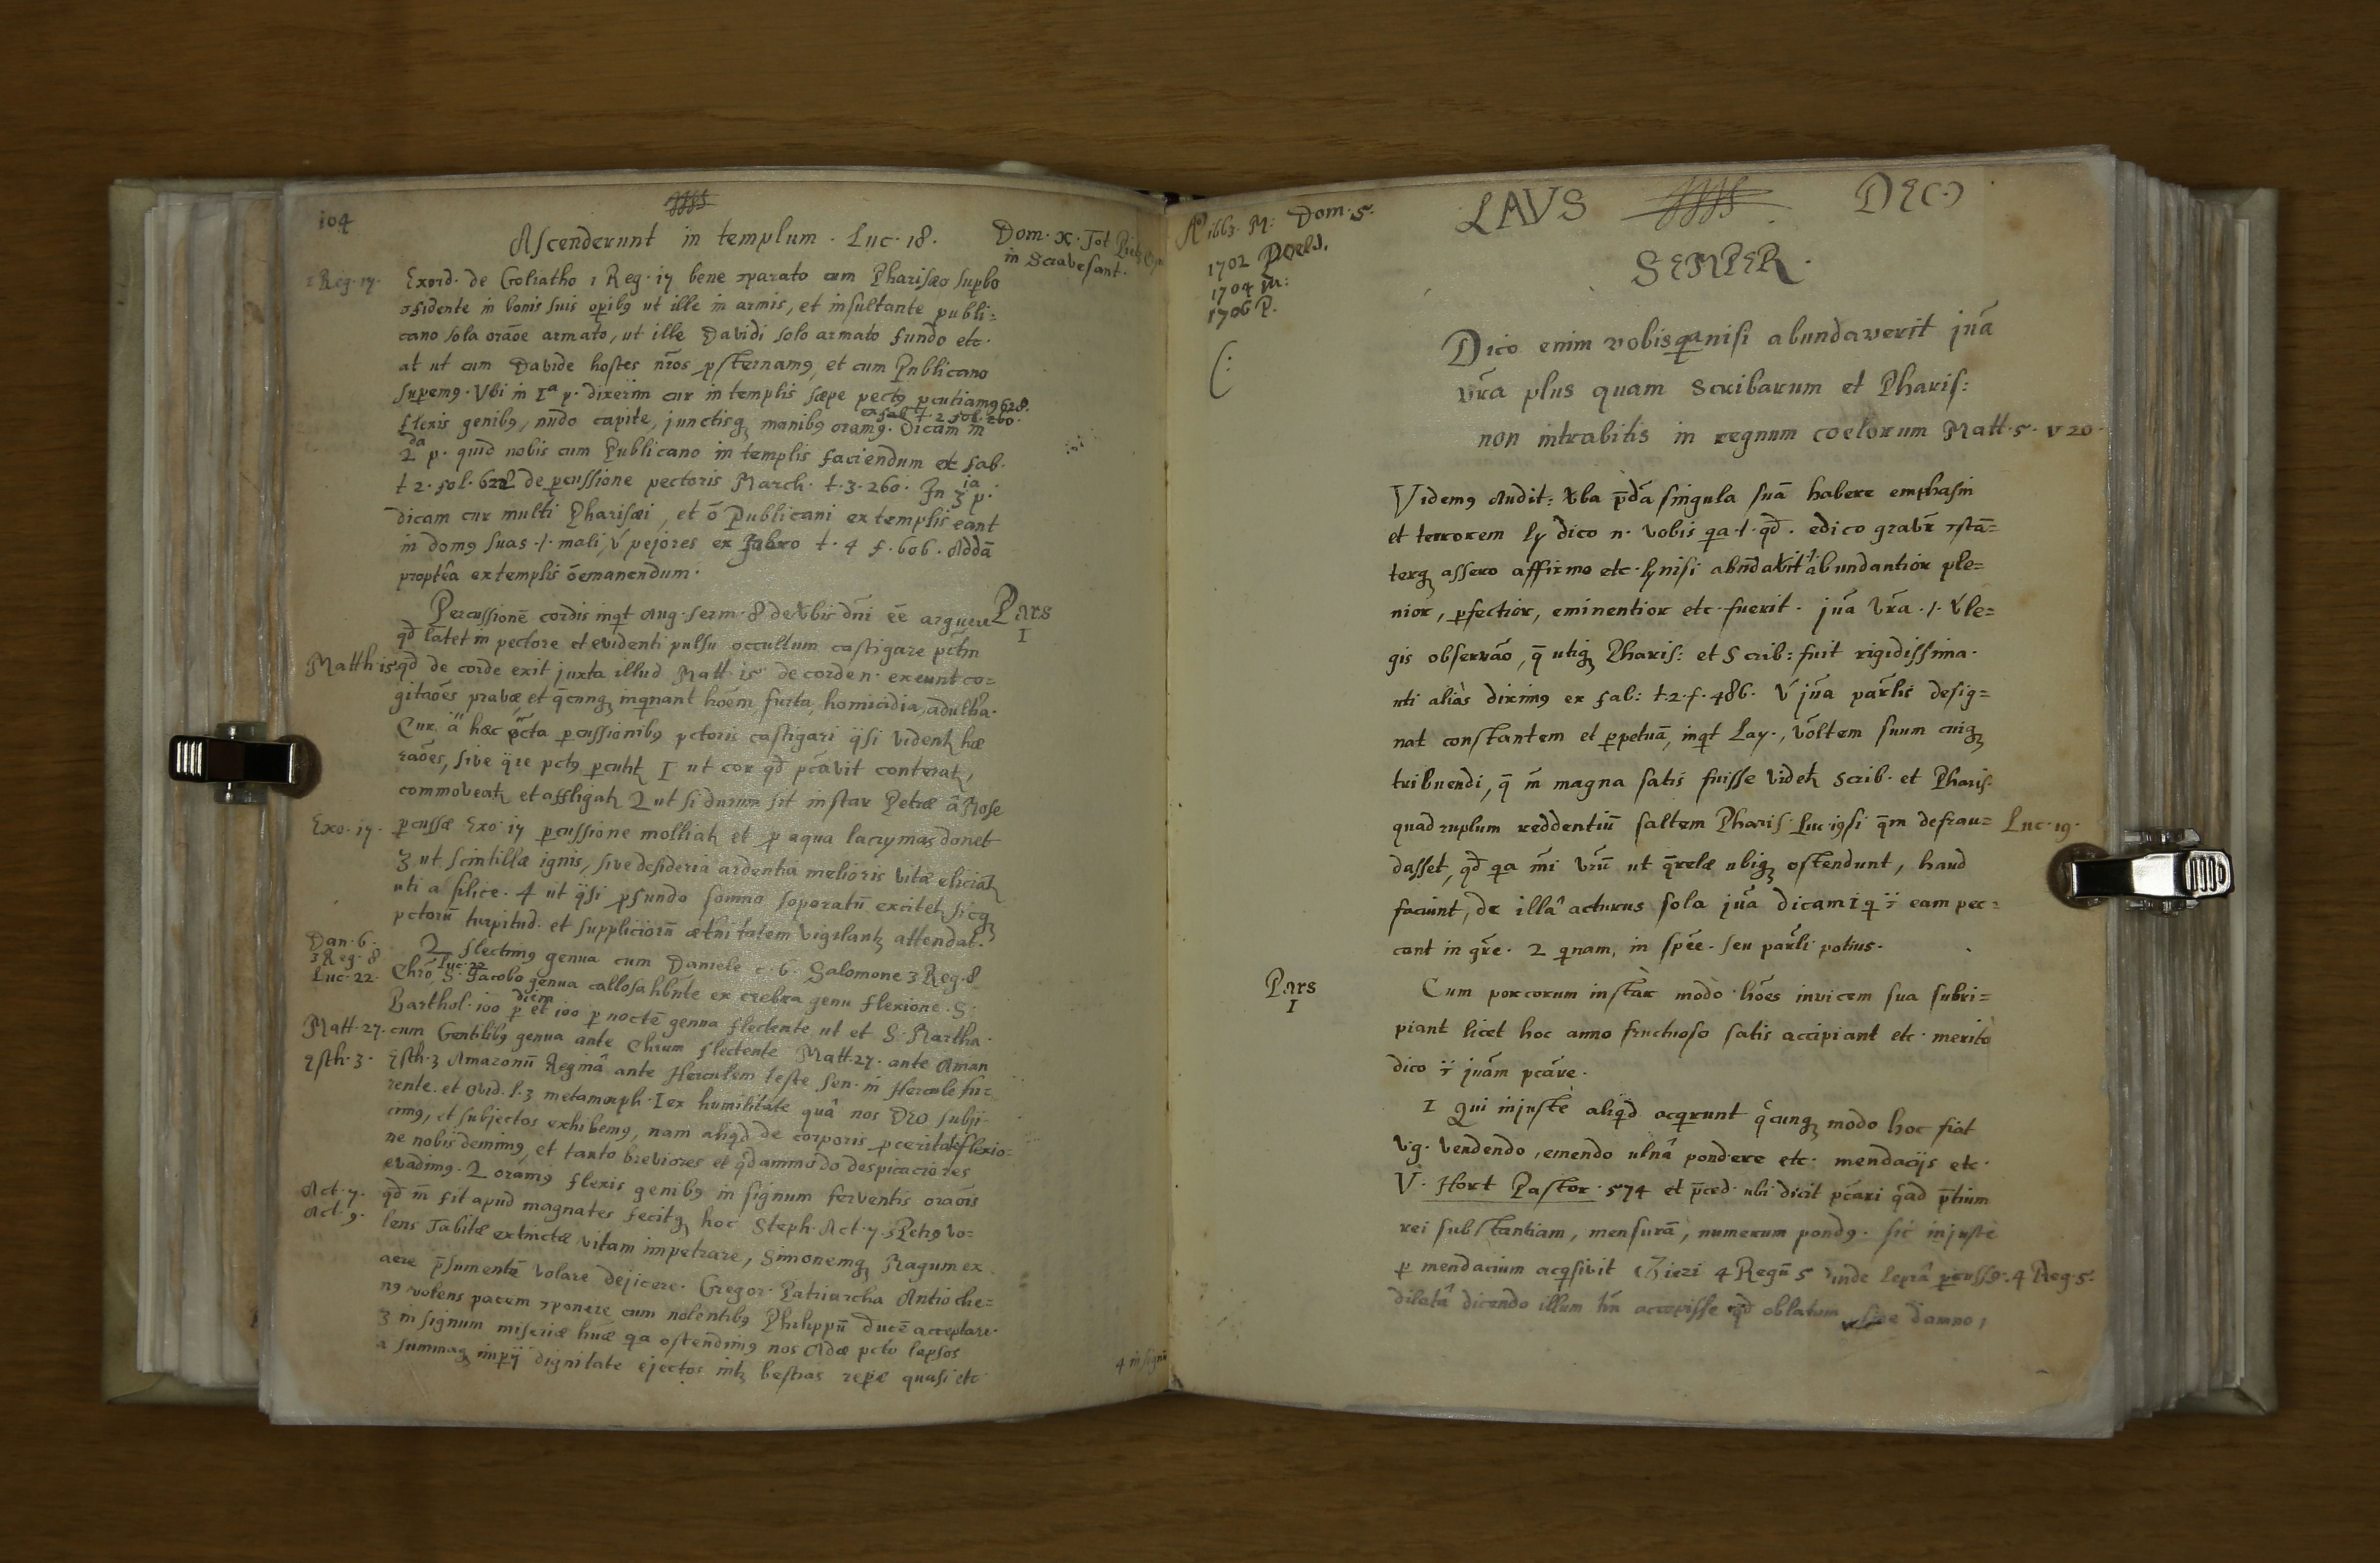 104
Ascenderunt in templum. Luc. 18.
Dom. X. Tot
in Scavesant.
1 Reg. 17.
Exord. de Goliatho 1 Reg. 17 bene ꝯparato cum Pharisæo supbo
ꝯfidente in bonis suis opibꝯ ut ille in armis, et insultante publi=
cano sola oraõe armato, ut ille Davidi solo armato fundo etc.
at ut cum Davide hostes nr̃os ꝓsternamꝯ, et cum Publicano
supemꝯ. Ubi in Iª p. dixerim cur in templis sæpe pectꝯ pcutiamꝯ 628.
ex fab. t. 2 fol. 260.
flexis genibꝯ, nudo capite, junctisqꝫ manibꝯ oremꝯ. Dicam in
2 da p. quid nobis cum Publicano in templis faciendum ex fab.
t 2. fol. 628 de pcussione pectoris March. t. 3. 260. In 3 ia p.
dicam cur multi Pharisæi, et õ Publicani ex templis eant
in domꝯ suas .|. mali, v́ pejores ex Fabro t. 4 f. 606. Addã
proptêa ex templis õ emanendum.
Pars
I
Percussionẽ cordis inqt Aug. serm. 8 de Vbis dñi ẽe arguere
qđ latet in pectore et evidenti pulsu occultum castigare pctm̃
Matth 15
qđ de corde exit juxta illud Matt. 15 de corde n. exeunt co=
gitaões pravæ, et q̃cunqꝫ inqnant hoẽm furta, homicidia, adultia.
Cur ã hæc pcta pcussionibꝯ pctoris castigari qsi videntꝫ hæ
raões, sive qre pctꝯ pcutitꝫ I ut cor qđ pcavit conteratꝫ,
commoveatꝫ et affligatꝫ 2 ut si durum sit instar Petræ â Mose
Exo. 17.
pcussæ Exo. 17 pcussione molliatꝫ et ꝓ aqua lacrymas donet
3 ut scintillæ ignis, sive desideria ardentia melioris vitæ eliciatꝫ
uti a silice. 4 ut qsi ꝓfundo somno soporatũ excitetꝫ sicqꝫ
pctorũ turpitud. et suppliciorũ ætnitatem vigilantꝫ attendat.
Dan. 6.
3 Reg. 8
Luc. 22.
2 flectimꝯ genua cum Daniele c. 6. Salomone 3 Reg. 8
Luc. 22
Chrõ, S. Jacobo genua callosa hñte ex crebra genu flexione. S.
diem
Barthol. 100 p et 100 p noctẽ genua flectente ut et S. Martha.
Matt. 27.
cum Gentilibꝯ genua ante Chrum flectente Matt. 27. ante Aman
Esth. 3.
Esth. 3 Amazonũ Reginâ ante Herculem teste Sen. in Hercule fu=
rente. et Ovid. l. 3 metamorph. I ex humilitate quâ nos Deo subji=
cimꝯ, et subjectos exhibemꝯ, nam aliqđ de corporis proceritate flexio=
ne nobis demimꝯ, et tanto breviores et qđammodo despicaciores
evadimꝯ. 2 oramꝯ flexis genibꝯ in signum ferventis oraõis
Act. 7.
Act. 9.
qđ m̃ fit apud magnates fecitqꝫ hoc Steph. Act. 7. S Petrꝯ vo=
lens Tabitæ extinctæ vitam impetrare, Simonemqꝫ Magum ex
aere p̃sumentẽ volare dejicere. Gregor. Patriarcha Antioche=
nꝯ volens pacem ꝯponere cum nolentibꝯ Philippũ ducẽ acceptare.
3 in signum miseriæ huæ qa ostendimꝯ nos Adæ pcto lapsos
a summaqꝫ impij dignitate ejectos intꝫ bestias repe quasi etc
4 in signũ
Aº 1663. M: Dom. 5.
1702 Poels.
1704 M:
1706 P.
LAVS DEO
SEMPER.
Dico enim vobis qa nisi abundaverit jũa
vr̃a plus quam Scribarum et Pharis:
non intrabitis in regnum coelorum Matt. 5. v 20.
Videmꝯ Audit: Vba p̃đa singula suã habere emphasin
et terrorem ly dico n. vobis qa .|. qđ. edico gravr̃ ꝯstã=
terqꝫ assero affirmo etc. ly nisi abũdavit .|. abundantior ple=
nior, pfectior, eminentior etc. fuerit. jũa vr̃a .|. v́ le=
gis observão, q̃ utiqꝫ Pharis: et Scrib: fuit rigidissima.
uti alias diximꝯ ex fab: t. 2. f. 486. V́ jũa parlis desig=
nat constantem et ppetuã, inqt Lay., võltem suum cuiqꝫ
tribuendi, q̃ m̃ magna satis fuisse videtꝫ Scrib. et Pharis.
quadruplum reddentiũ saltem Pharis. Luc. 19 si q̃m defrau=
Luc. 19.
dasset, qđ qa m̃i vr̃ũ ut q̃relæ ubiqꝫ ostendunt, haud
faciunt, de illâ acturus sola jũa dicam I q ÿ eam pec=
cant in gr̃e. 2 qnam, in spẽe. seu parli potius.
Pars
I
Cum porcorum instar modo hões invicem sua subri=
piant licet hoc anno fructuoso satis accipiant etc. meritò
dico ÿ jũam pcare.
I Qui injustè aliqđ acqrunt qcunqꝫ modo hoc fiat
v.g. vendendo, emendo ulnâ pondere etc. mendacijs etc.
V. Hort Pastor. 574 et p̃ced. ubi dicit pcari qađ p̃tium
rei substantiam, mensurã, numerum pondꝯ. sic injuste
p mendacium acqsivit Giezi 4 Regũ 5 inde leprâ pcussꝯ. 4 Reg. 5.
dilatâ dicendo illum tñ accepisse qđ oblatum sive damno,